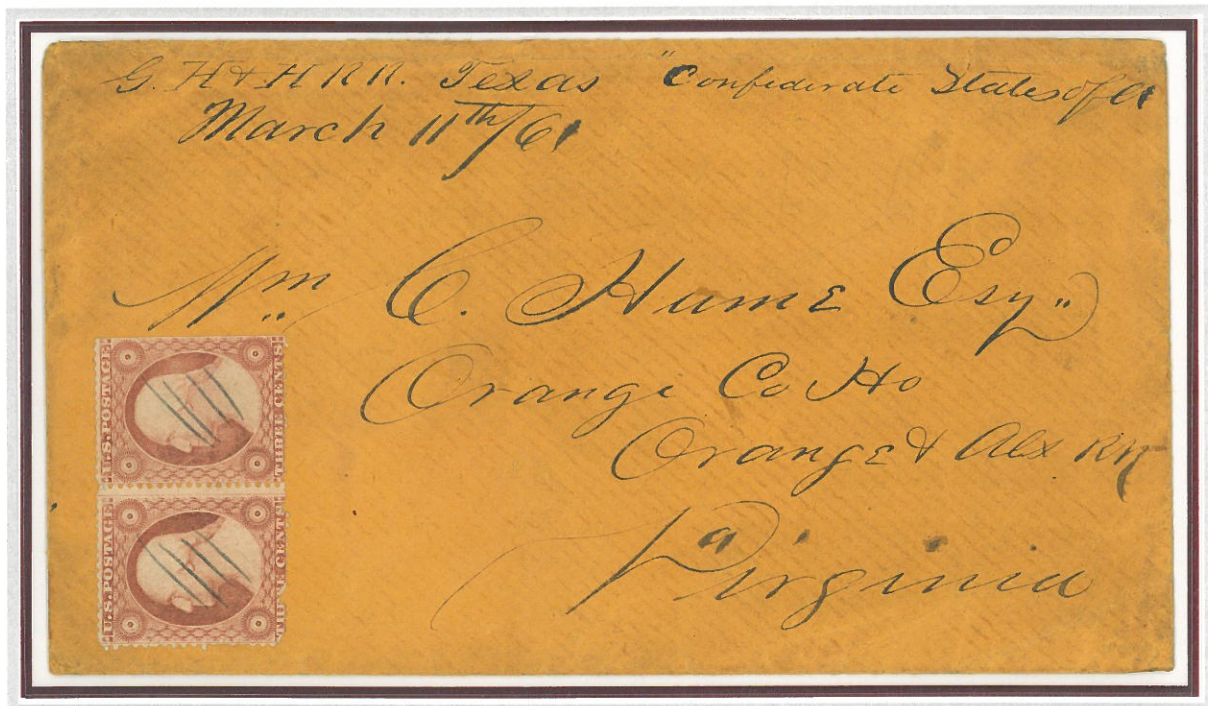 G. H & H RR. Texas "Confederate States of A
March 11th/61
Wm C. Hume Esq.
Orange Co Ho
Orange & Alex RR
Virginia
U.S. POSTAGE
THREE CENTS
U.S. POSTAGE
THREE CENTS